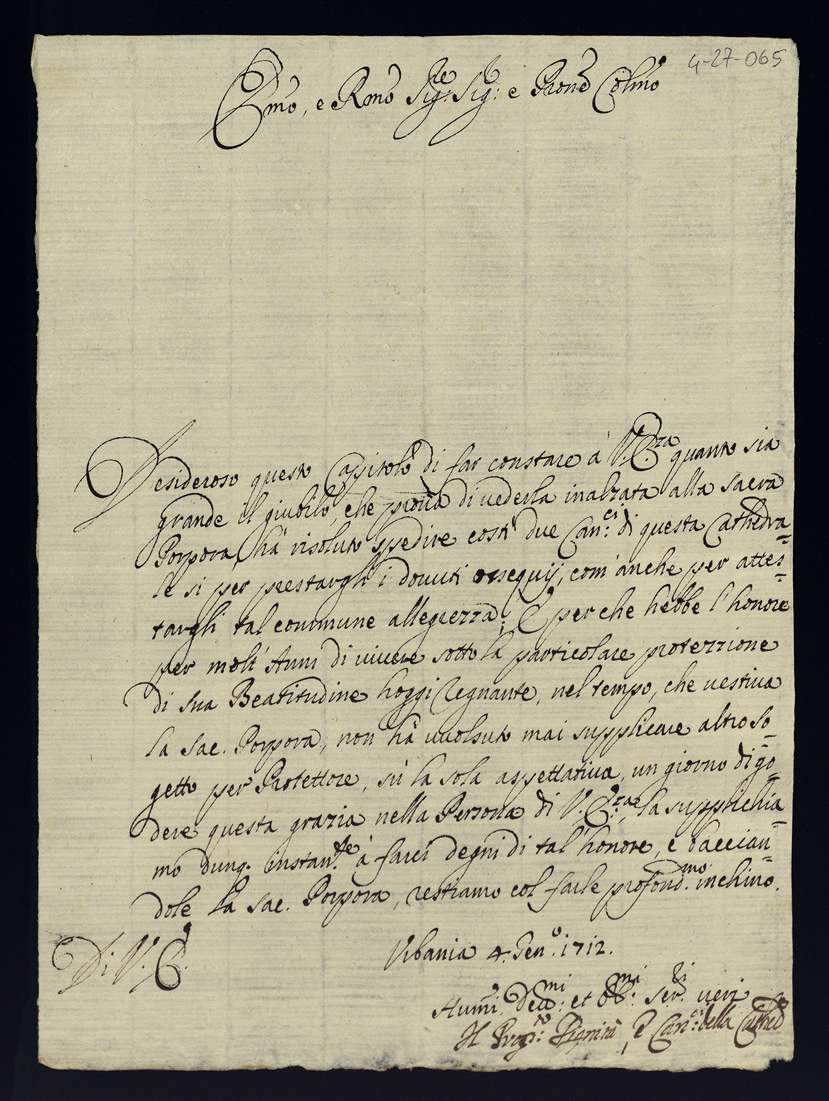 4-27-065
Emo, e Rmo Sig.re Sig.re e Prone Colmo
Desideroso questo Cappitolo di far constare à V. E.za quanto sia
grande il giubilo, che prova di vederla inalzata alla Sacra
Porpora, hà risoluto spedire costì due Can.ci di questa Cathedra=
le si per prestargli i dovuti ossequij, com'anche per attes=
targli tal commune allegrezza; E perche hebbe l'honore
per molt'Anni di vivere sotto la particolare protezzione
di sua Beatitudine hoggi regnante, nel tempo, che vestiva
la Sac. Porpora, non hà vuolsuto mai supplicare altro so=
getto per Protettore, sù la sola aspettativa, un giorno di go=
dere questa grazia nella Persona di V. E.za, la supplichia=
mo dunq. instan.te à farci degni di tal'honore, e bacciau=
dole la Sac. Porpora, restiamo col farle profond.mo inchino.
Di V. E.
Urbania 4. Gen.o 1712.
Humi. Deu.mi et Obb.mi Ser.ri veri
Il Dignità, e Can.ci della Cathed